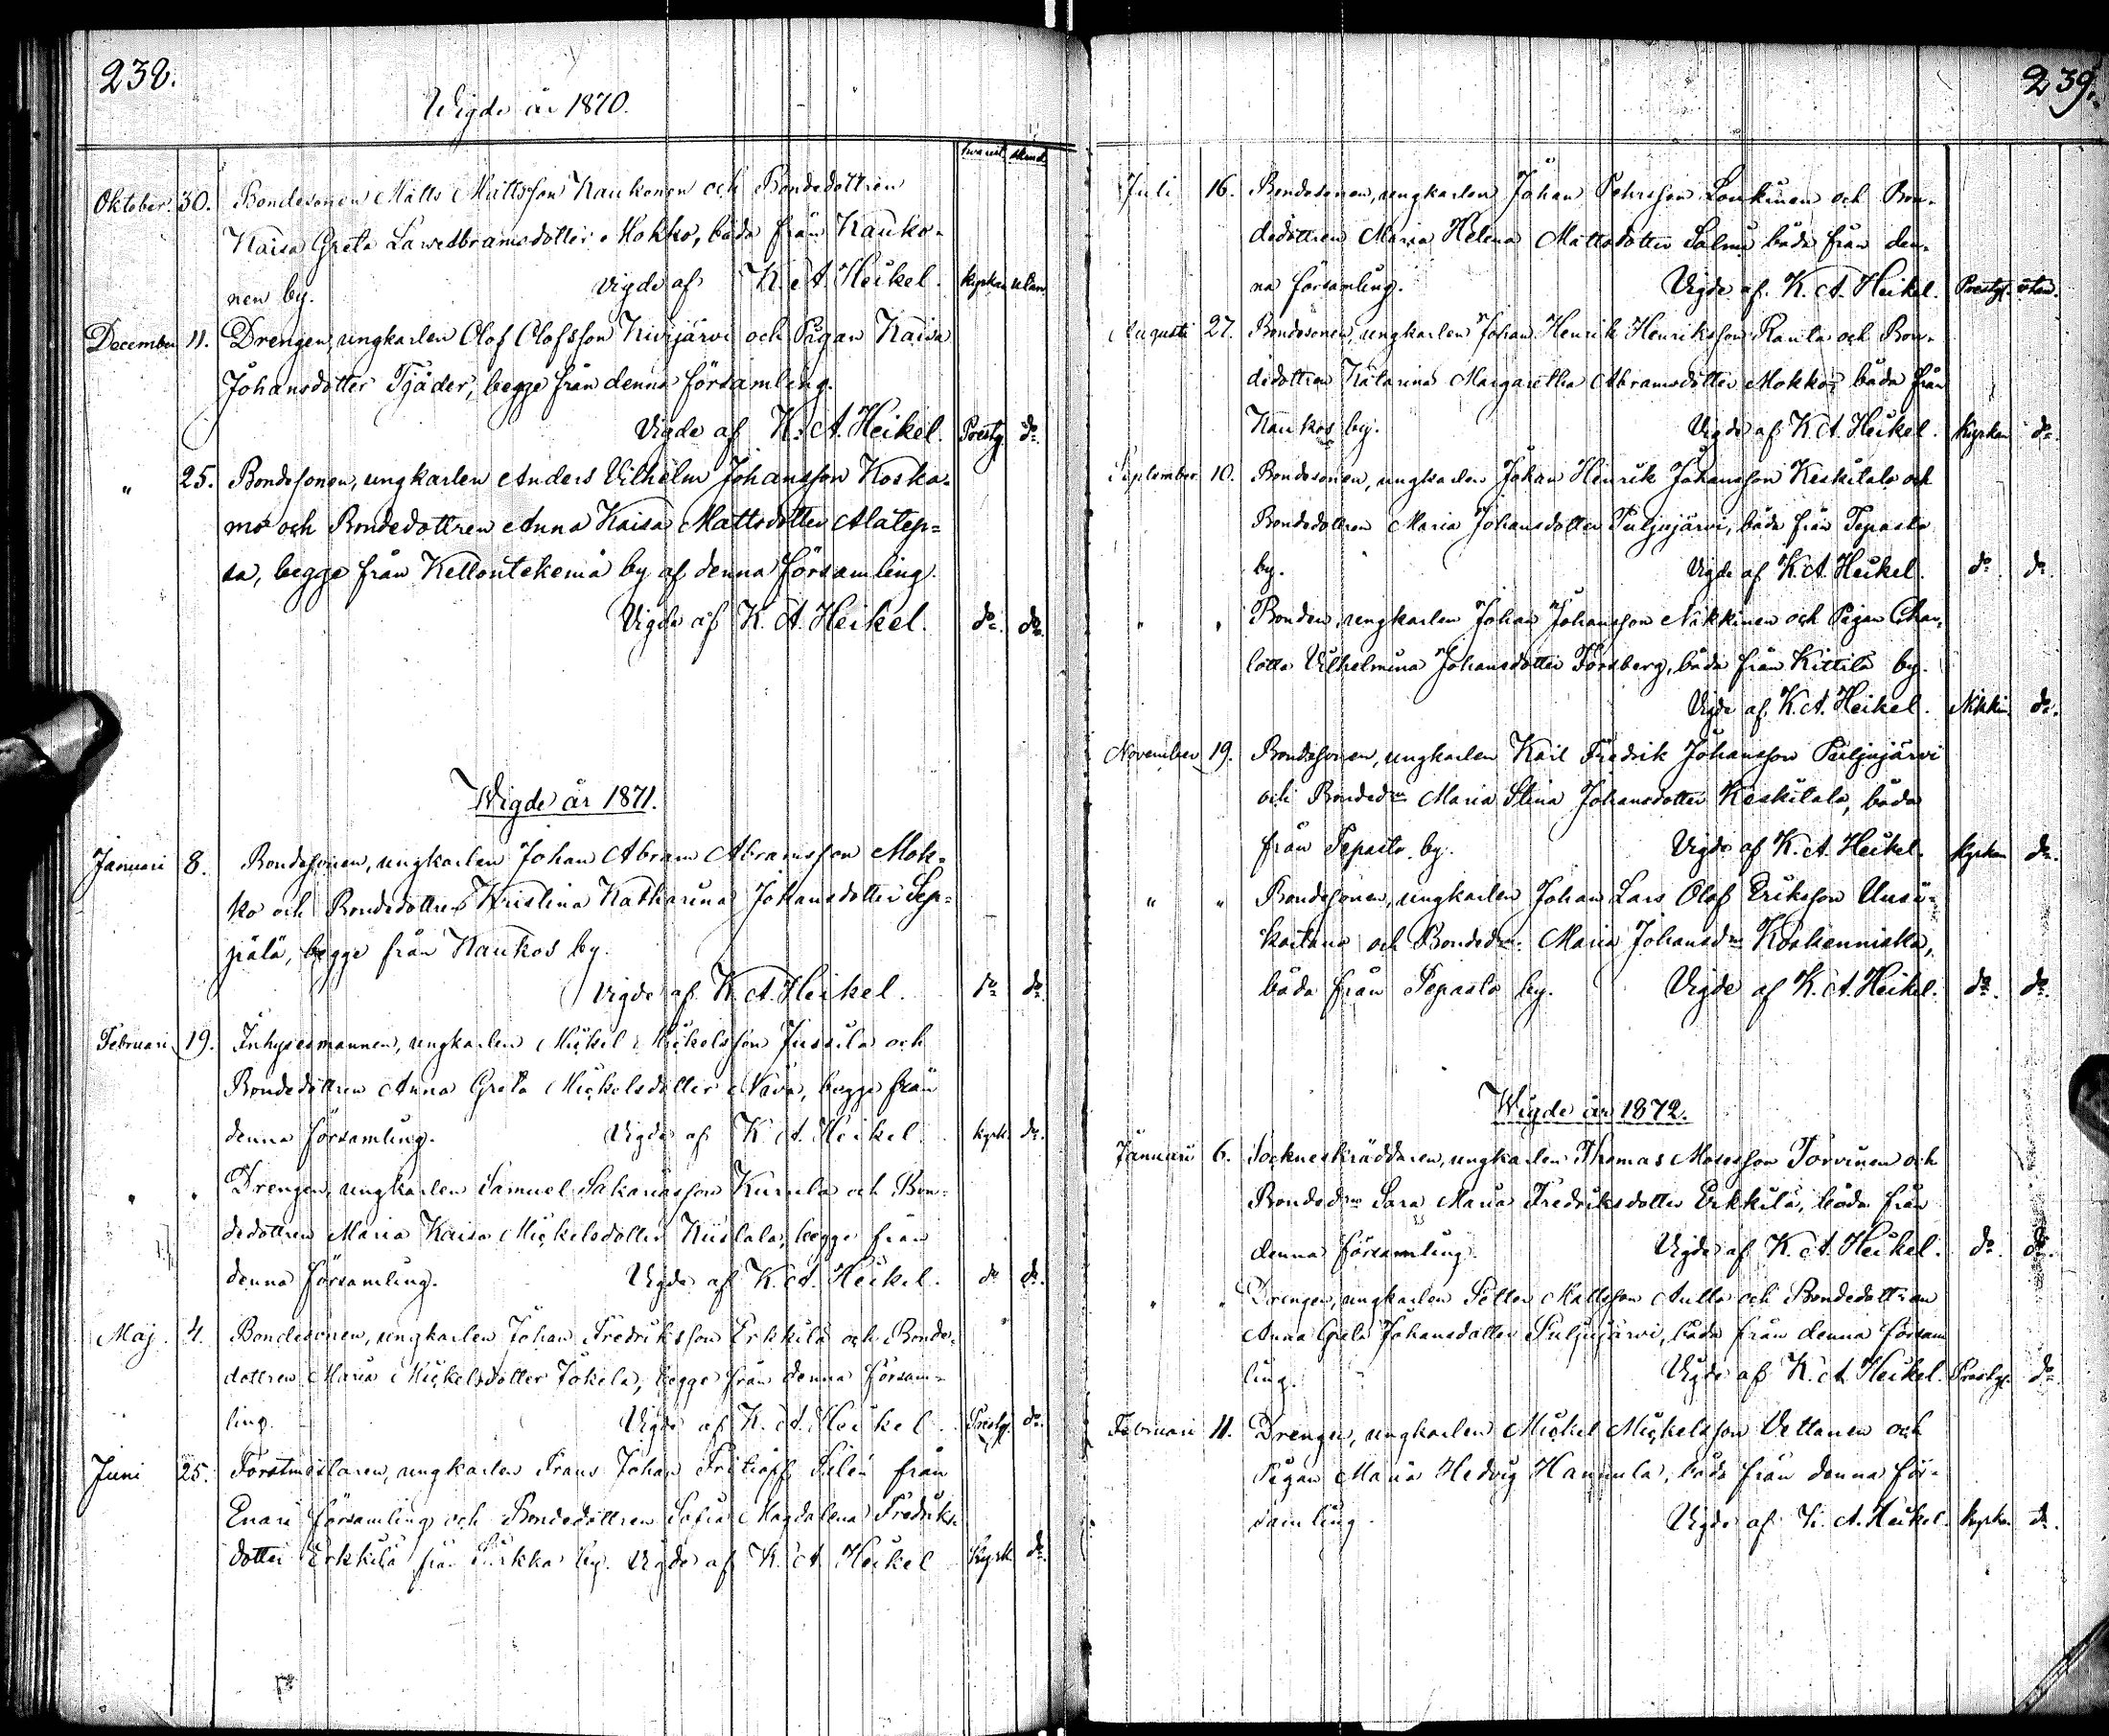 238.
Wigde år 1870.
Oktober. 30. Bondesonen Matts Mattsson Kaukonen och Bondedottren
Kaisa Greta Mokko, båda från Kauko-
nen by. Vigde af K. A. Heikel. kyrkan utan
December 11. Drengen, ungkarlen Olof Olofsson Kurjärvi och Pigan Kaisa
Johansdotter Tjäder, begge från denna församling.
Vigde af K. A. Heikel. Prestg. do.
" 25. Bondesonen, ungkarlen Anders Vilhelm Johansson Koska-
mo och Bondedottren Anna Kaisa Mattsdotter Alatep=
sa, begge från Kellontekemä by af denna församling.
Vigde af K. A. Heikel. do. do.
Wigde år 1871.
Januari 8. Bondesonen, ungkarlen Johan Abram Abramsson Mok-
ko och Bondedottren Kristina Katharina Johansdotter Sep=
pälä, begge från Kaukos by.
Vigde af K. A. Heikel. do do
Februari 19. Inhysesmannen, ungkarlen Mickel Mickelsson Jussila och
Bondedottren Anna Greta Mickelsdotter Näva, begge från
denna församling. Vigde af K. A. Heikel. kyrk. do.
" " Drengen, ungkarlen Samuel Sakariasson Kurula och Bon-
dedottren Maria Kaisa Mickelsdotter Kiistala, begge från
denna församling. Vigde af K. A. Heikel. do do.
Maj. 4. Bondesonen, ungkarlen Johan Fredriksson Erkkilä och Bonde-
dottren Maria Mickelsdotter Jokela, begge från denna försam-
ling. Vigde af K. A. Heikel. Prestg. do.
Juni 25. Forstmästaren, ungkarlen Frans Johan Fritiof Silén från
Enari församling och Bondedottren Sofia Magdalena Fredriks-
dotter Erkkilä från Sirkka by. Vigde af K. A. Heikel Kyrk do.
239.
Juli 16. Bondesonen, ungkarlen Johan Pehrsson Lonkinen och Bon-
dedottren Maria Helena Mattsdotter Salmi båda från den-
na församling. Vigde af K. A. Heikel. Prestg. utan.
Augusti 27. Bondesonen, ungkarlen Johan Henrik Henriksson Ranta och Bon-
dedottren Katarina Margaretha Abramsdotter Mokko, båda från
Kaukos by. Vigde af K. A. Heikel. kyrkan do.
September 10. Bondesonen, ungkarlen Johan Henrik Johansson Keskitalo och
Bondedottren Maria Johansdotter Puljujärvi, båda från Tepasto
by. Vigde af K. A. Heikel. do. do.
" " Bonden, ungkarlen Johan Johansson Nikkinen och Pigan Char-
lotta Vilhelmina Johansdotter Forsberg, båda från Kittilä by.
Vigde af K. A. Heikel. Nikkin. do.
November 19. Bondesonen, ungkarlen Karl Fredrik Johansson Puljujärvi
och Bondedn Maria Stina Johansdotter Keskitalo, båda
från Tepasto by. Vigde af K. A. Heikel. kyrkan do.
" " Bondesonen, ungkarlen Johan Lars Olof Eriksson Uusi-
kartano och Bondedn. Maria Johansdn Koskenniska,
båda från Tepasto by. Vigde af K. A. Heikel. do. do.
Wigde år 1872.
Januari 6. Sockneskräddaren, ungkarlen Thomas Mosesson Torvinen och
Bondedn Sara Maria Fredriksdotter Erkkilä, båda från
denna församling. Vigde af K. A. Heikel. do. do.
" " Drengen, ungkarlen Petter Mattsson Aulla och Bondedottren
Anna Greta Johansdotter Puljujärvi, båda från denna försam
ling. Vigde af K. A. Heikel. Prestg. do
Februari 11. Drengen, ungkarlen Mickel Mickelsson Vettanen och
Pigan Maria Hedvig Hannula, båda från denna för-
samling. Vigde af K. A. Heikel. kyrkan do.